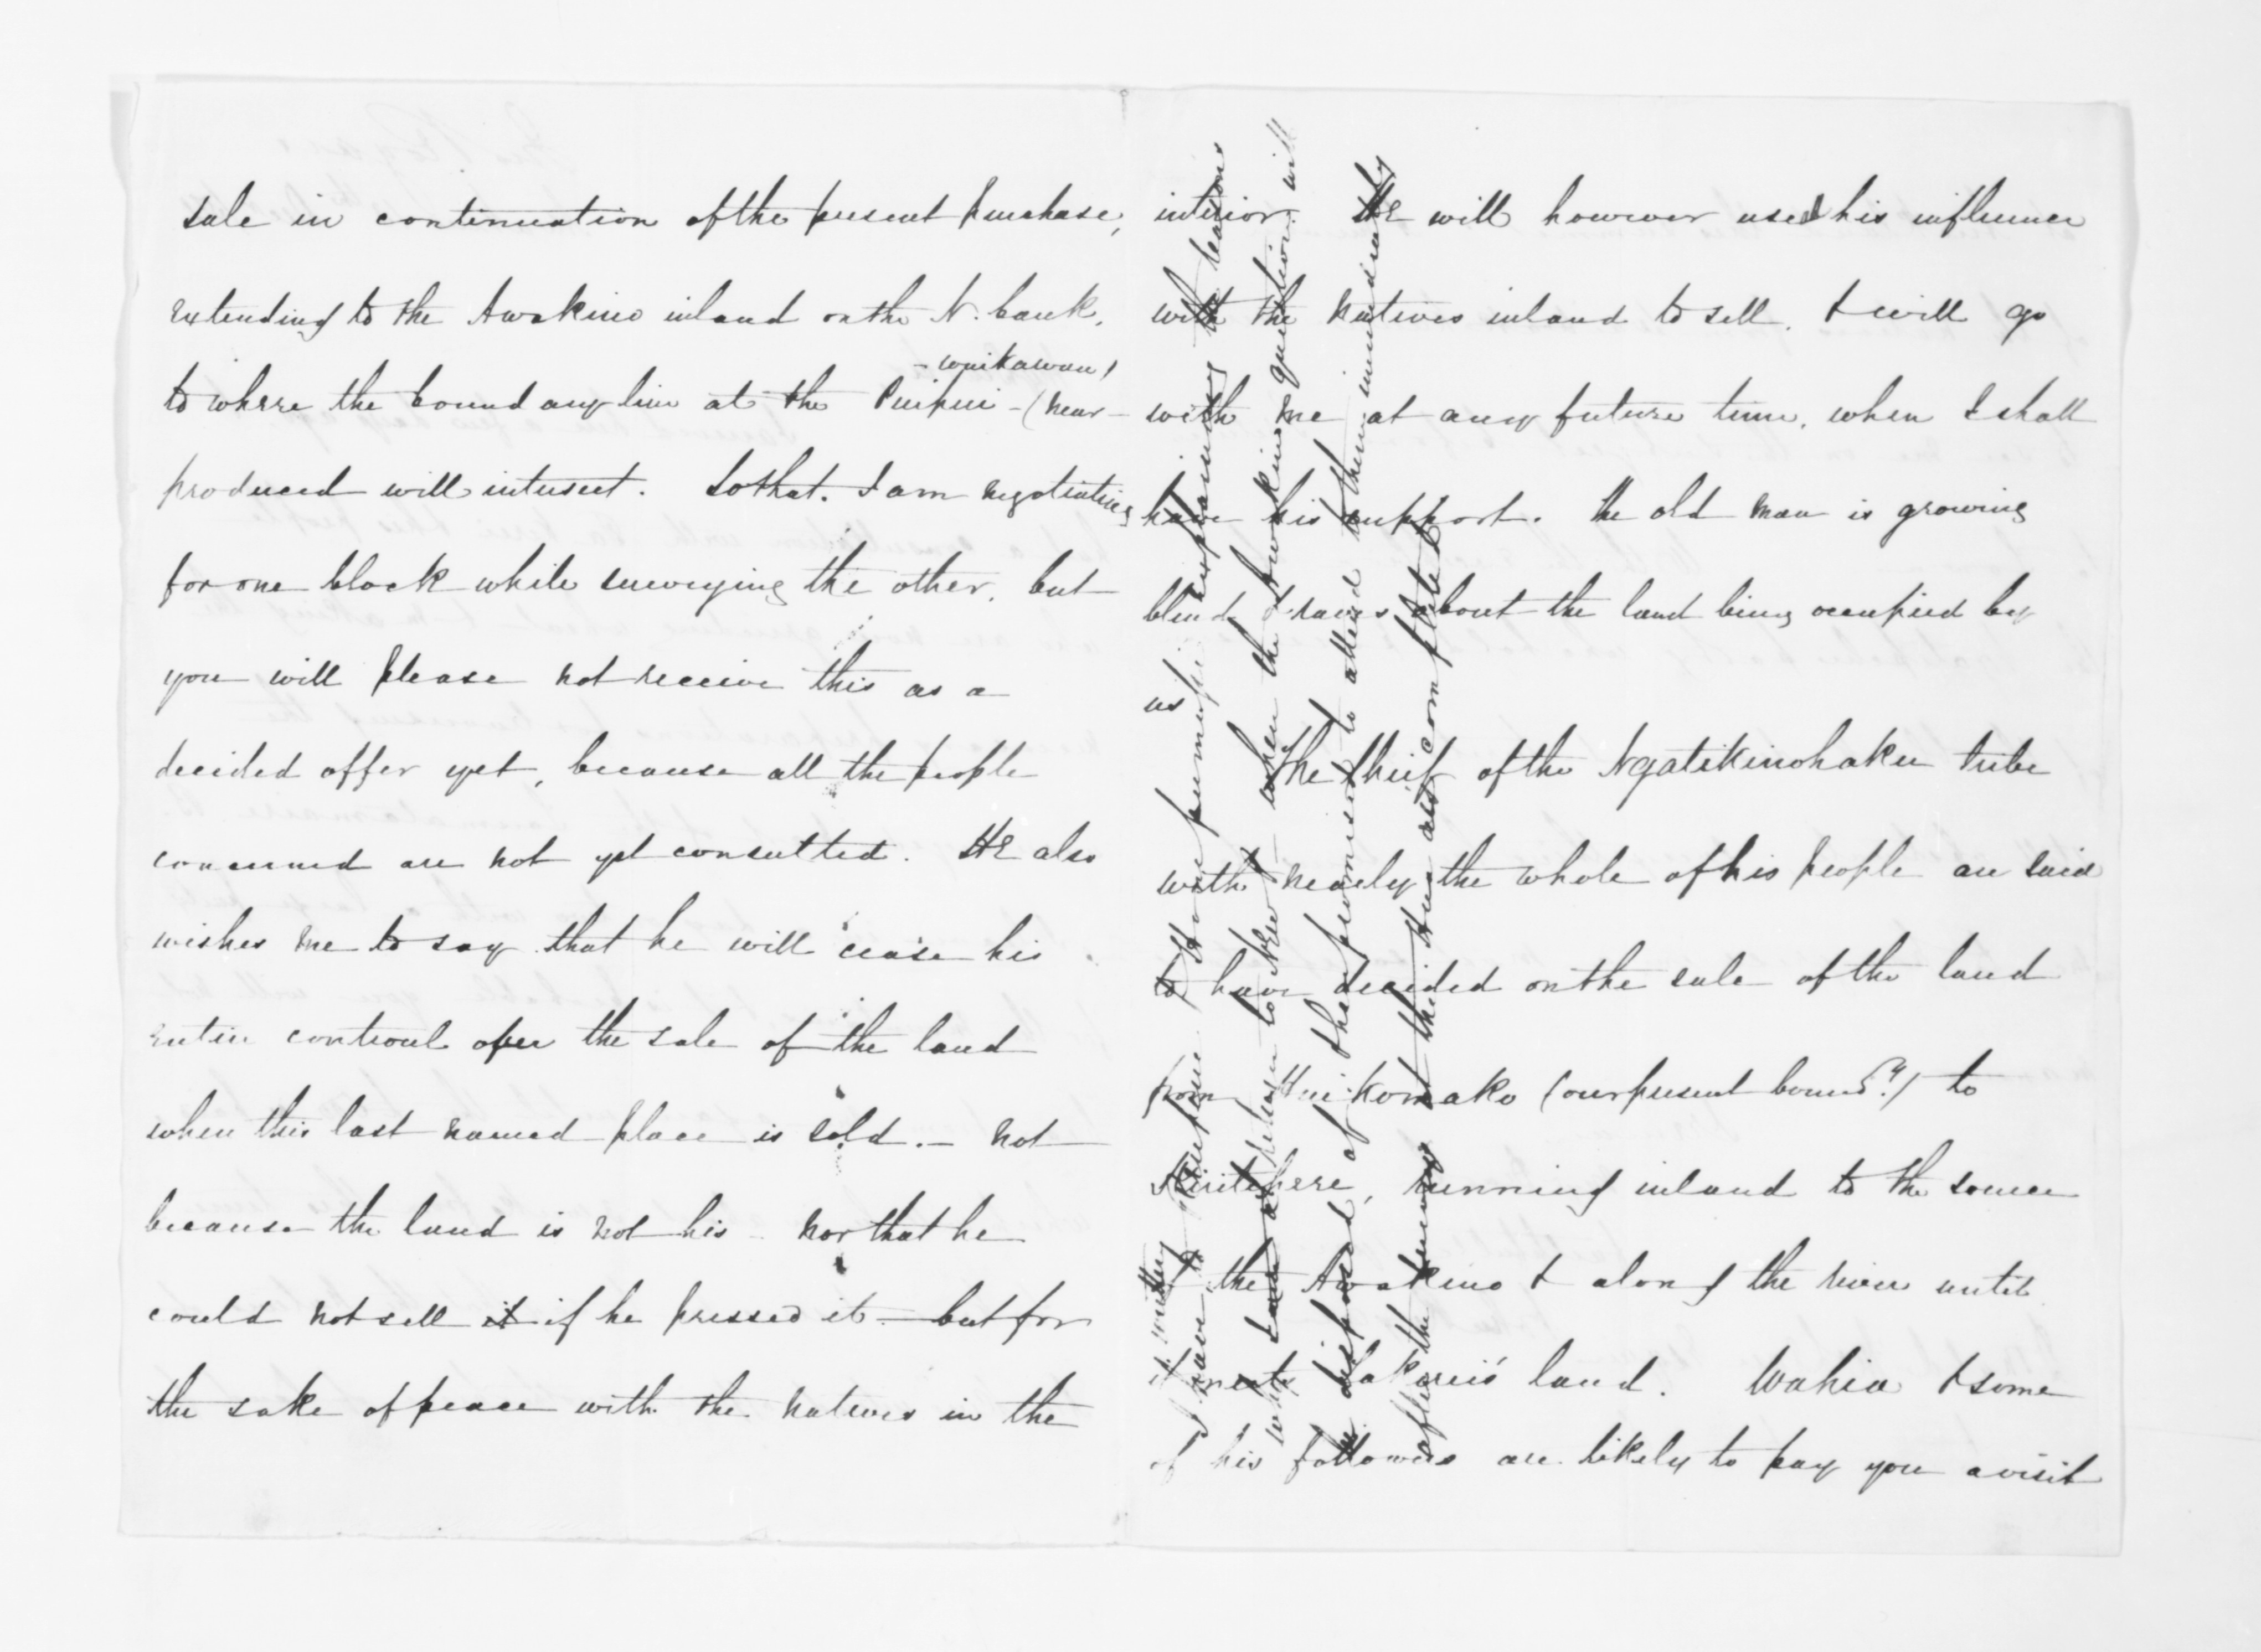 sale in continuation of the present purchase,
extending to the Awakino inland on the N. bank,
to where the boundary line at the Puipui - (near -
- waikawau)
produced will intersect. So that. I am negotiating
for one block while surveying the other, but
you will please not receive this as a
decided offer yet, because all the people
concerned are not yet consulted. He also
wishes me to say that he will cease his
entire controul over the sale of the land
when this last named place is sold. - not
because the land is not his - nor that he
could not sell it if he pressed it - but for
the sake of peace with the natives in the
interior. He will however use his influence
with the natives inland to sell, & will go
with me at any future time, when I shall
have his support. The old man is growing
blind & raves about the land being occupied by
us
The Chief of the Ngatikinohaku tribe
with nearly the whole of his people are said
to have decided on the sale of the land
from Huikomako (our present bound.y) to
Kiritehere, running inland to the source
of the Awakino & along the river until
it meets Takerei's land. Wahia & some
of his followers are likely to pay you a visit
I have written to Hone explaining the reasons
why I am not when the Awakino question will
be disposed of; they promised to attend to them immediately
after the survey that they are completed